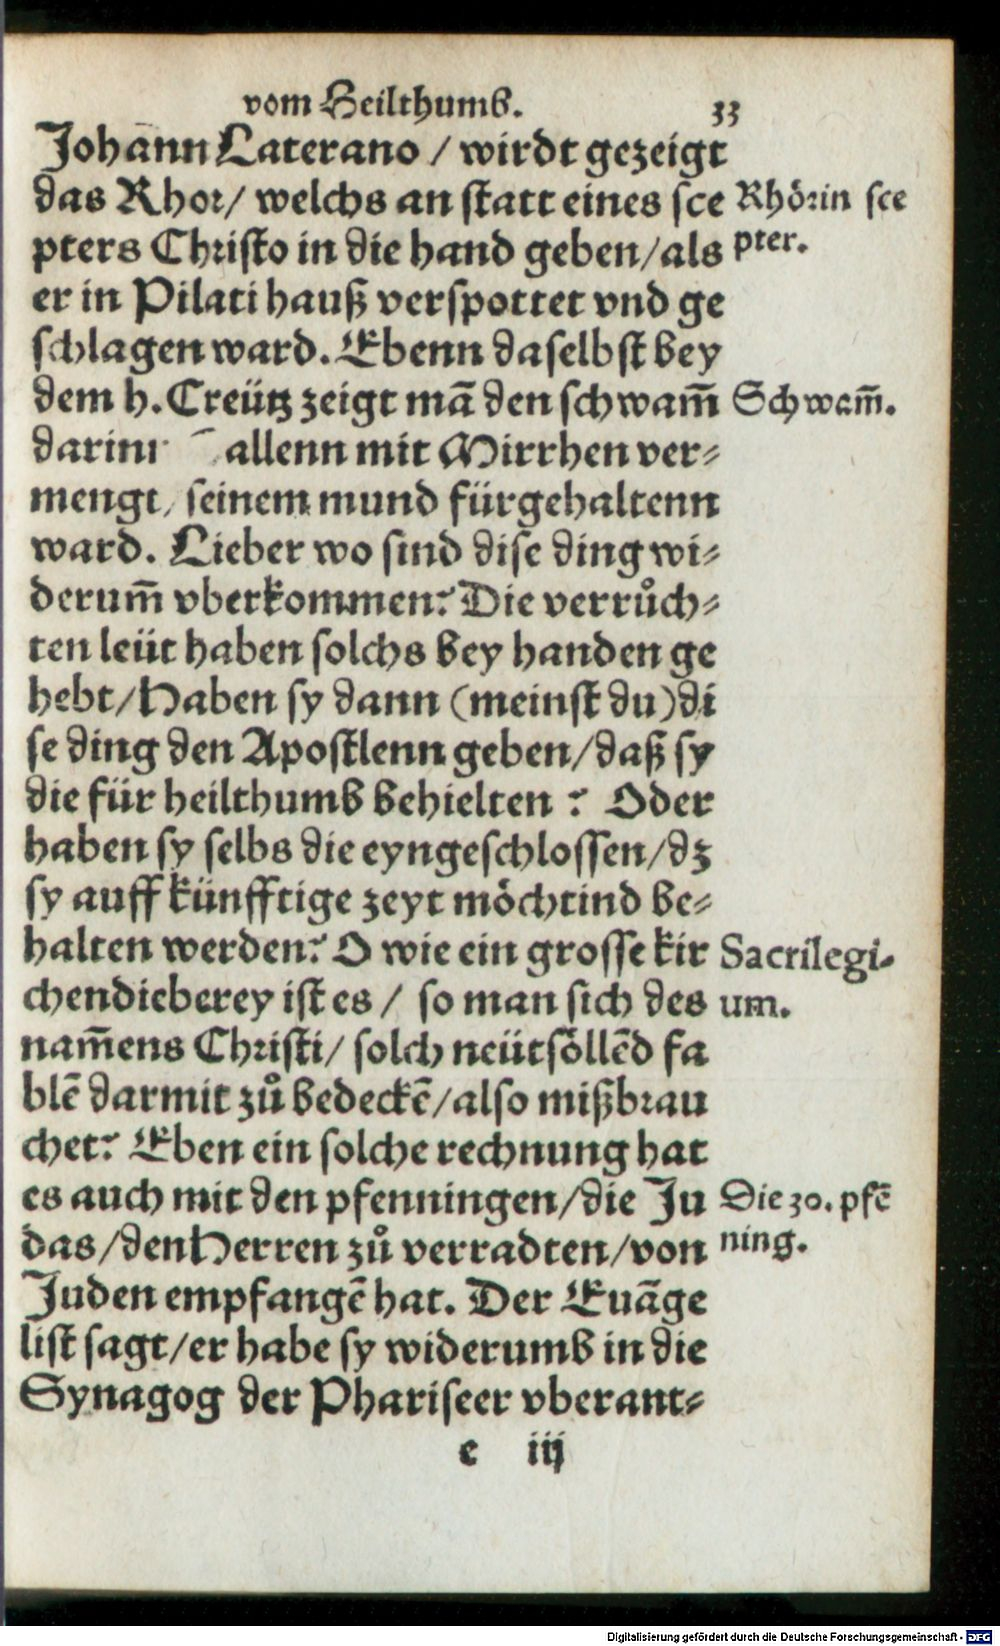 vom Heilthumb. 33
Johann Laterano / wirdt gezeigt
das Rhor/ welchs an statt eines sce
pters Christo in die hand geben/als
er in Pilati hauß verspottet vnd ge
schlagen ward. Ebenn daselbst bey
dem h. Creütz zeigt mā den schwam̄
allenn mit Mirrhen ver⸗
mengt/ seinem mund fürgehaltenn
ward. Lieber wo sind dise ding wi⸗
derum̄ vberkommen? Die verrůch⸗
ten leüt haben solchs bey handen ge
hebt/Haben sy dann (meinst du)di
se ding den Apostlenn geben/daß sy
die für heilthumb behielten ? Oder
haben sy selbs die eyngeschlossen/dz
sy auff künfftige zeyt möchtind be⸗
halten werden? O wie ein grosse kir
chendieberey ist es / so man sich des
nam̄ens Christi/ solch neütsöllēd fa
blē darmit zů bedeckē/also mißbrau
chet? Eben ein solche rechnung hat
es auch mit den pfenningen/die Ju
das/den Herren zů verradten/von
Juden empfangē hat. Der Euāge
list sagt/er habe sy widerumb in die
Synagog der Phariseer vberant⸗
e iij
Rhörin sce
pter.
Schwam̄.
Sacrilegi⸗
um.
Die 30. pfē
ning.
Digitalisierung gefördert durch die Deutsche Forschungsgemeinschaft - DFG